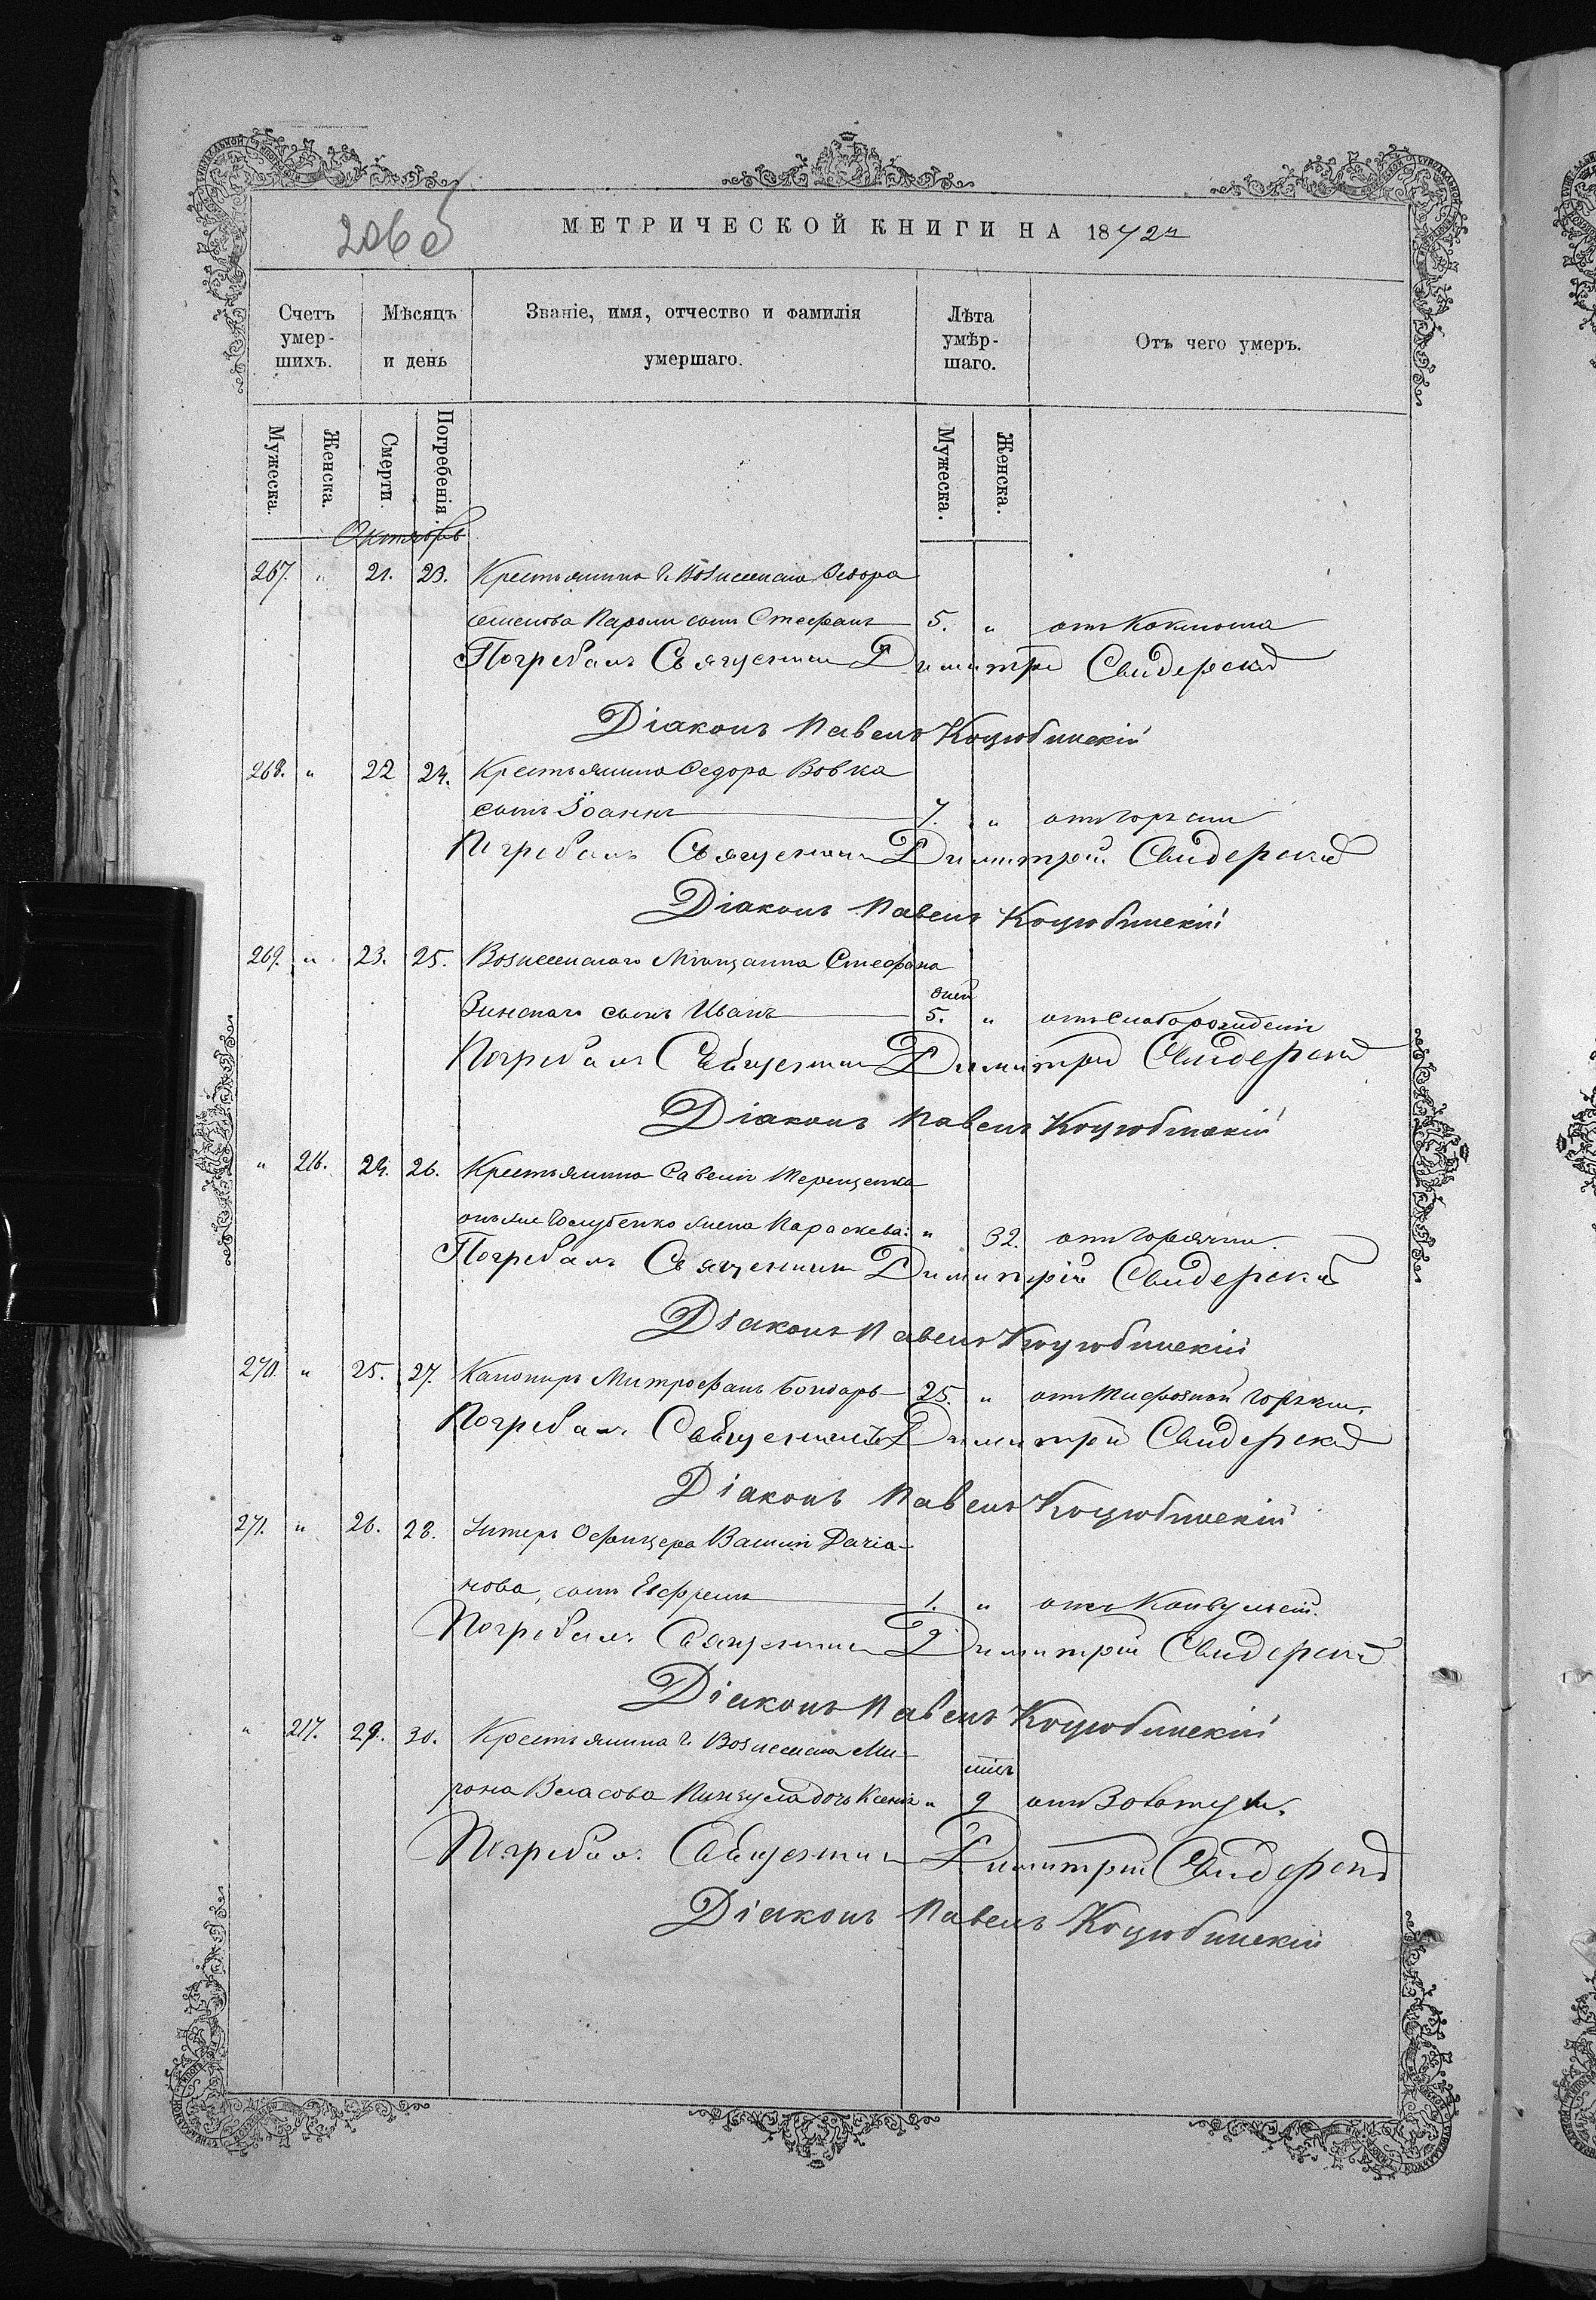 206 об
МЕТРИЧЕСКОЙ КНИГИ НА 1872 г.
Счетъ умер-шихъ.
Мѣсяцъ и день
Званіе, имя, отчество и фамилія умершаго.
Лѣта умѣр-шаго.
Отъ чего умеръ.
Мужеска. Женска. Смерти. Погребенія. Мужеска. Женска.
Октябрь
267. " 21. 23. Крестьянина г. Вознесенска Ѳедора
Семенова сынъ Стефанъ 5. " отъ Коклюша
Погребалъ Священникъ Димитрій Свидерскій
Діаконъ Павелъ Коцюбинскій
268. " 22 24. Крестьянина Ѳедора Вовка
сынъ Іоаннъ 7. " отъ горячки
Погребалъ Священникъ Димитрій Свидерскій
Діаконъ Павелъ Коцюбинскій
269. " 23. 25. Вознесенскаго Мѣщанина Стефана
сынъ Иванъ дней 5. " отъ Слаборожденія
Погребалъ Священникъ Димитрій Свидерскій
Діаконъ Павелъ Коцюбинскій
" 216. 24. 26. Крестьянина Савелія Терещенка
онъ же Голубенко жена Параскева: " 32. отъ Горячки.
Погребалъ Священникъ Димитрій Свидерскій
Діаконъ Павелъ Коцюбинскій
270. " 25. 27. Канониръ Митрофанъ Бондарь 25. " отъ Тифозной горячки.
Погребалъ Священникъ Димитрій Свидерскій
Діаконъ Павелъ Коцюбинскій
271. " 26. 28. Унтеръ Офицера Василія
нова, сынъ Ефремъ 1. " отъ Конвульсій.
Погребалъ Священникъ Димитрій Свидерскій
Діаконъ Павелъ Коцюбинскій
" 217. 29. 30. Крестьянина г. Вознесенска Ми-
рона Власова дочь Ксенія " 9 отъ Золотухи.
Погребалъ Священникъ Димитрій Свидерскій
Діаконъ Павелъ Коцюбинскій